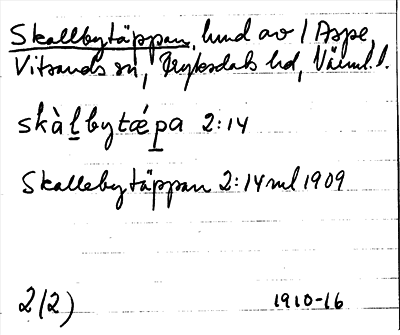 Skallbytäppan, hmd av 1 Aspe,
Vitsands sn, Fryksdals hd, Värml. l.
skàlbytǽpa 2:14
Skallebytäppan 2:14 ml 1909
2(2) 1910-16